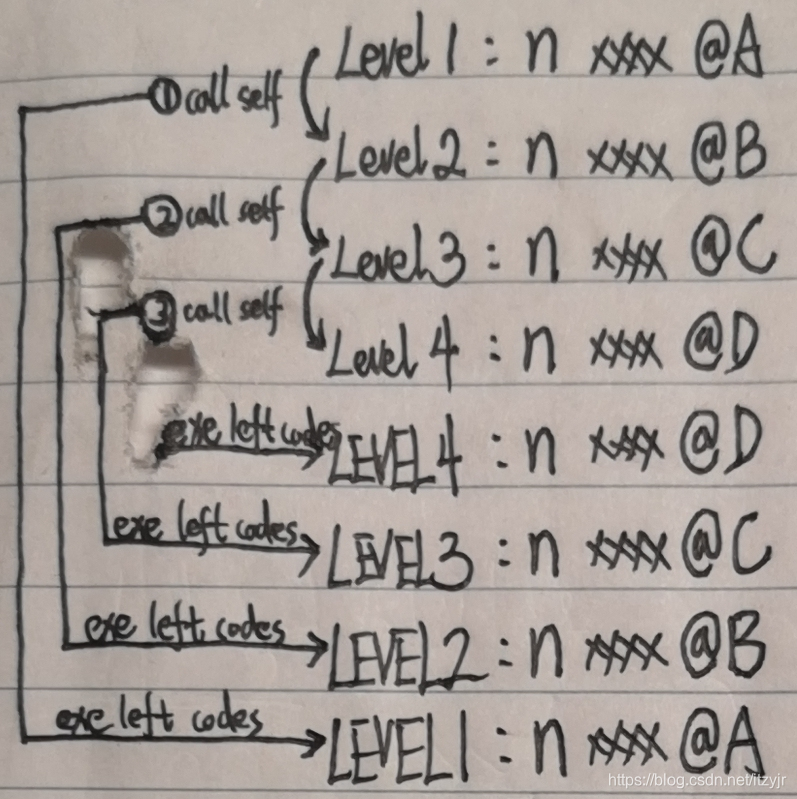 Level 1 : n xxxx @A
① call self
Level 2 : n xxxx @B
② call self
Level 3 : n xxxx @C
③ call self
Level 4 : n xxxx @D
exe left codes LEVEL4 : n xxxx @D
exe left codes LEVEL3 : n xxxx @C
exe left codes LEVEL2 : n xxxx @B
exe left codes LEVEL1 : n xxxx @A
https://blog.csdn.net/itzyjr